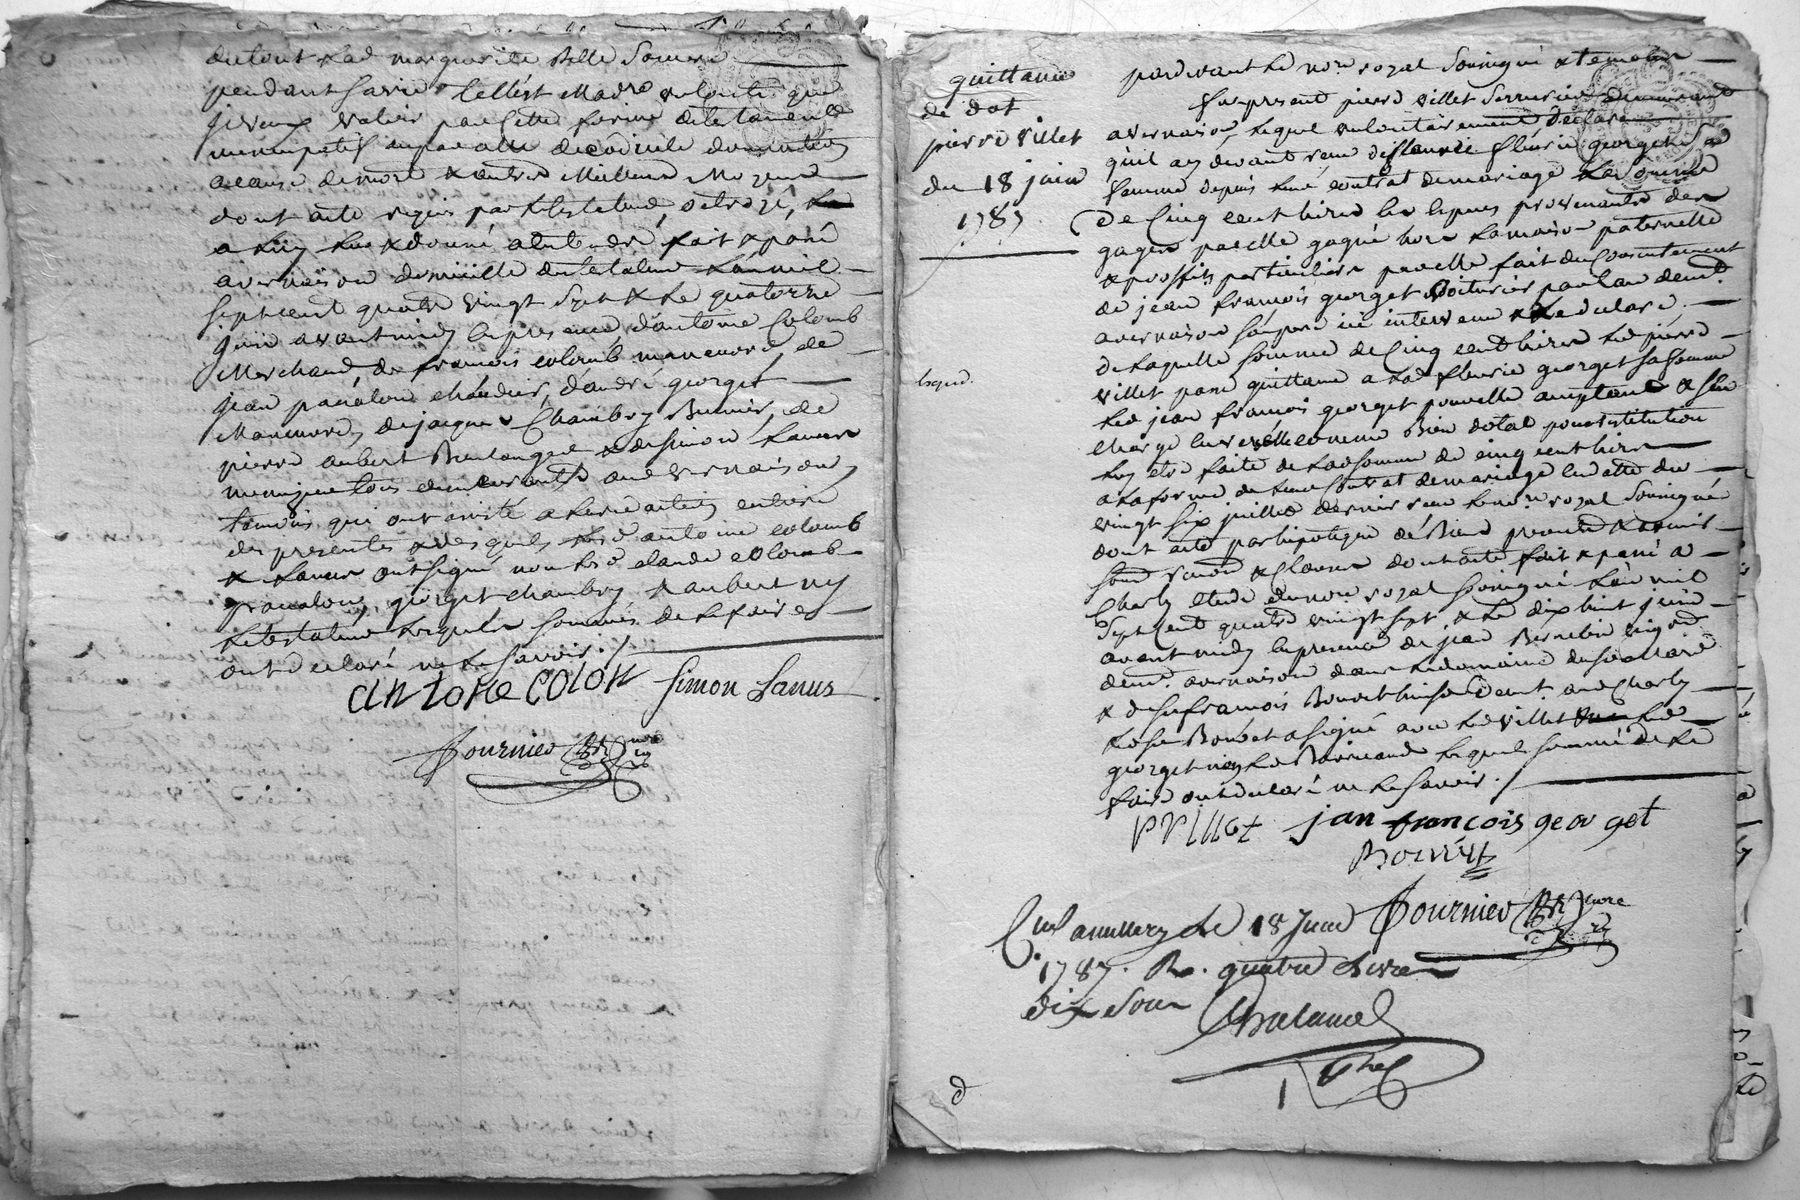 du tout lad marguerite Belle Soeur
pendant sa vie telle est ma dre volonté que
je veux valoir par cette forme de testament
nuncupatif ou par celle de codicile donnation
a cause de mort & autre Meilleur Moyen
dont acte requis par le testateur, octroyé, 
a luy lu & donné a entendre, fait & passé
a vernaison domicille du testateur l'an mil
sept cent quatre vingt sept & le quatorze
juin avant midy en presence d'antoine Colomb
Marchand, de françois colomb manoeuvre, de
jean panalou d'andré georget
Manoeuvre, de jaque Chambry de
pierre aubert Boulanger & de simon Lanus
tous demeurants aud vernaison
temoins qui ont assisté a la redaction entiere
des presentes & desquels led antoine colomb
& Lanus ont signé non led claude colomb
panalou, georget chambry & aubert ny
le testateur lesquels sommés de le faire
ont declaré ne le savoir ./.
antoine COlON simon Lanus
fournier nore
quittance
de dot
pierre villet
du 18 juin
1787
Insérée.
pardevant le nore royal soussigné & temoins
fut present pierre villet serrurier demeurant
a vernaison, lequel volontairement declare
qu'il a cy devant receu de fleurie georget sa
femme depuis leur contrat de mariage la somme
De Cinq cent livres les especes provenantes des
gages par elle gagné hors la maison paternelle
& proffits particuliers par elle fait du Consentement
de jean françois georget voiturier par eau demt
a vernaison son pere ici intervenu & le declare
de laquelle somme de Cinq cent livres led pierre
villet passe quittance a lad fleurie georget sa femme
led jean françois georget pour elle acceptant & s'en
charge envers elle comme Bien dotal pour restitution
luy etre faite de lad somme de cinq cent livres
a la forme de leur Contrat de mariage en datte du
vingt six juillet dernier receu le nore royal soussigné
dont acte par hipoteque de Biens promet & soumis
sous renon & Clauses dont acte fait & passé a
Charly etude du nore royal soussigné l'an mil
Sept Cent quatre vingt sept & le dix huit juin
avant midy en presence de jean vigneron
demt a vernaison dans le domaine de
& de sr françois Bouvet demt aud Charly
led sr Bouvet a signé avec led villet led
georget non led lequel sommé de le
faire ont declaré ne le savoir ./.
P Villet jan francois georget
Bouvet
fournier nore
Cul a millery le 18 Juin
1787. R. quatre livres
dix sous